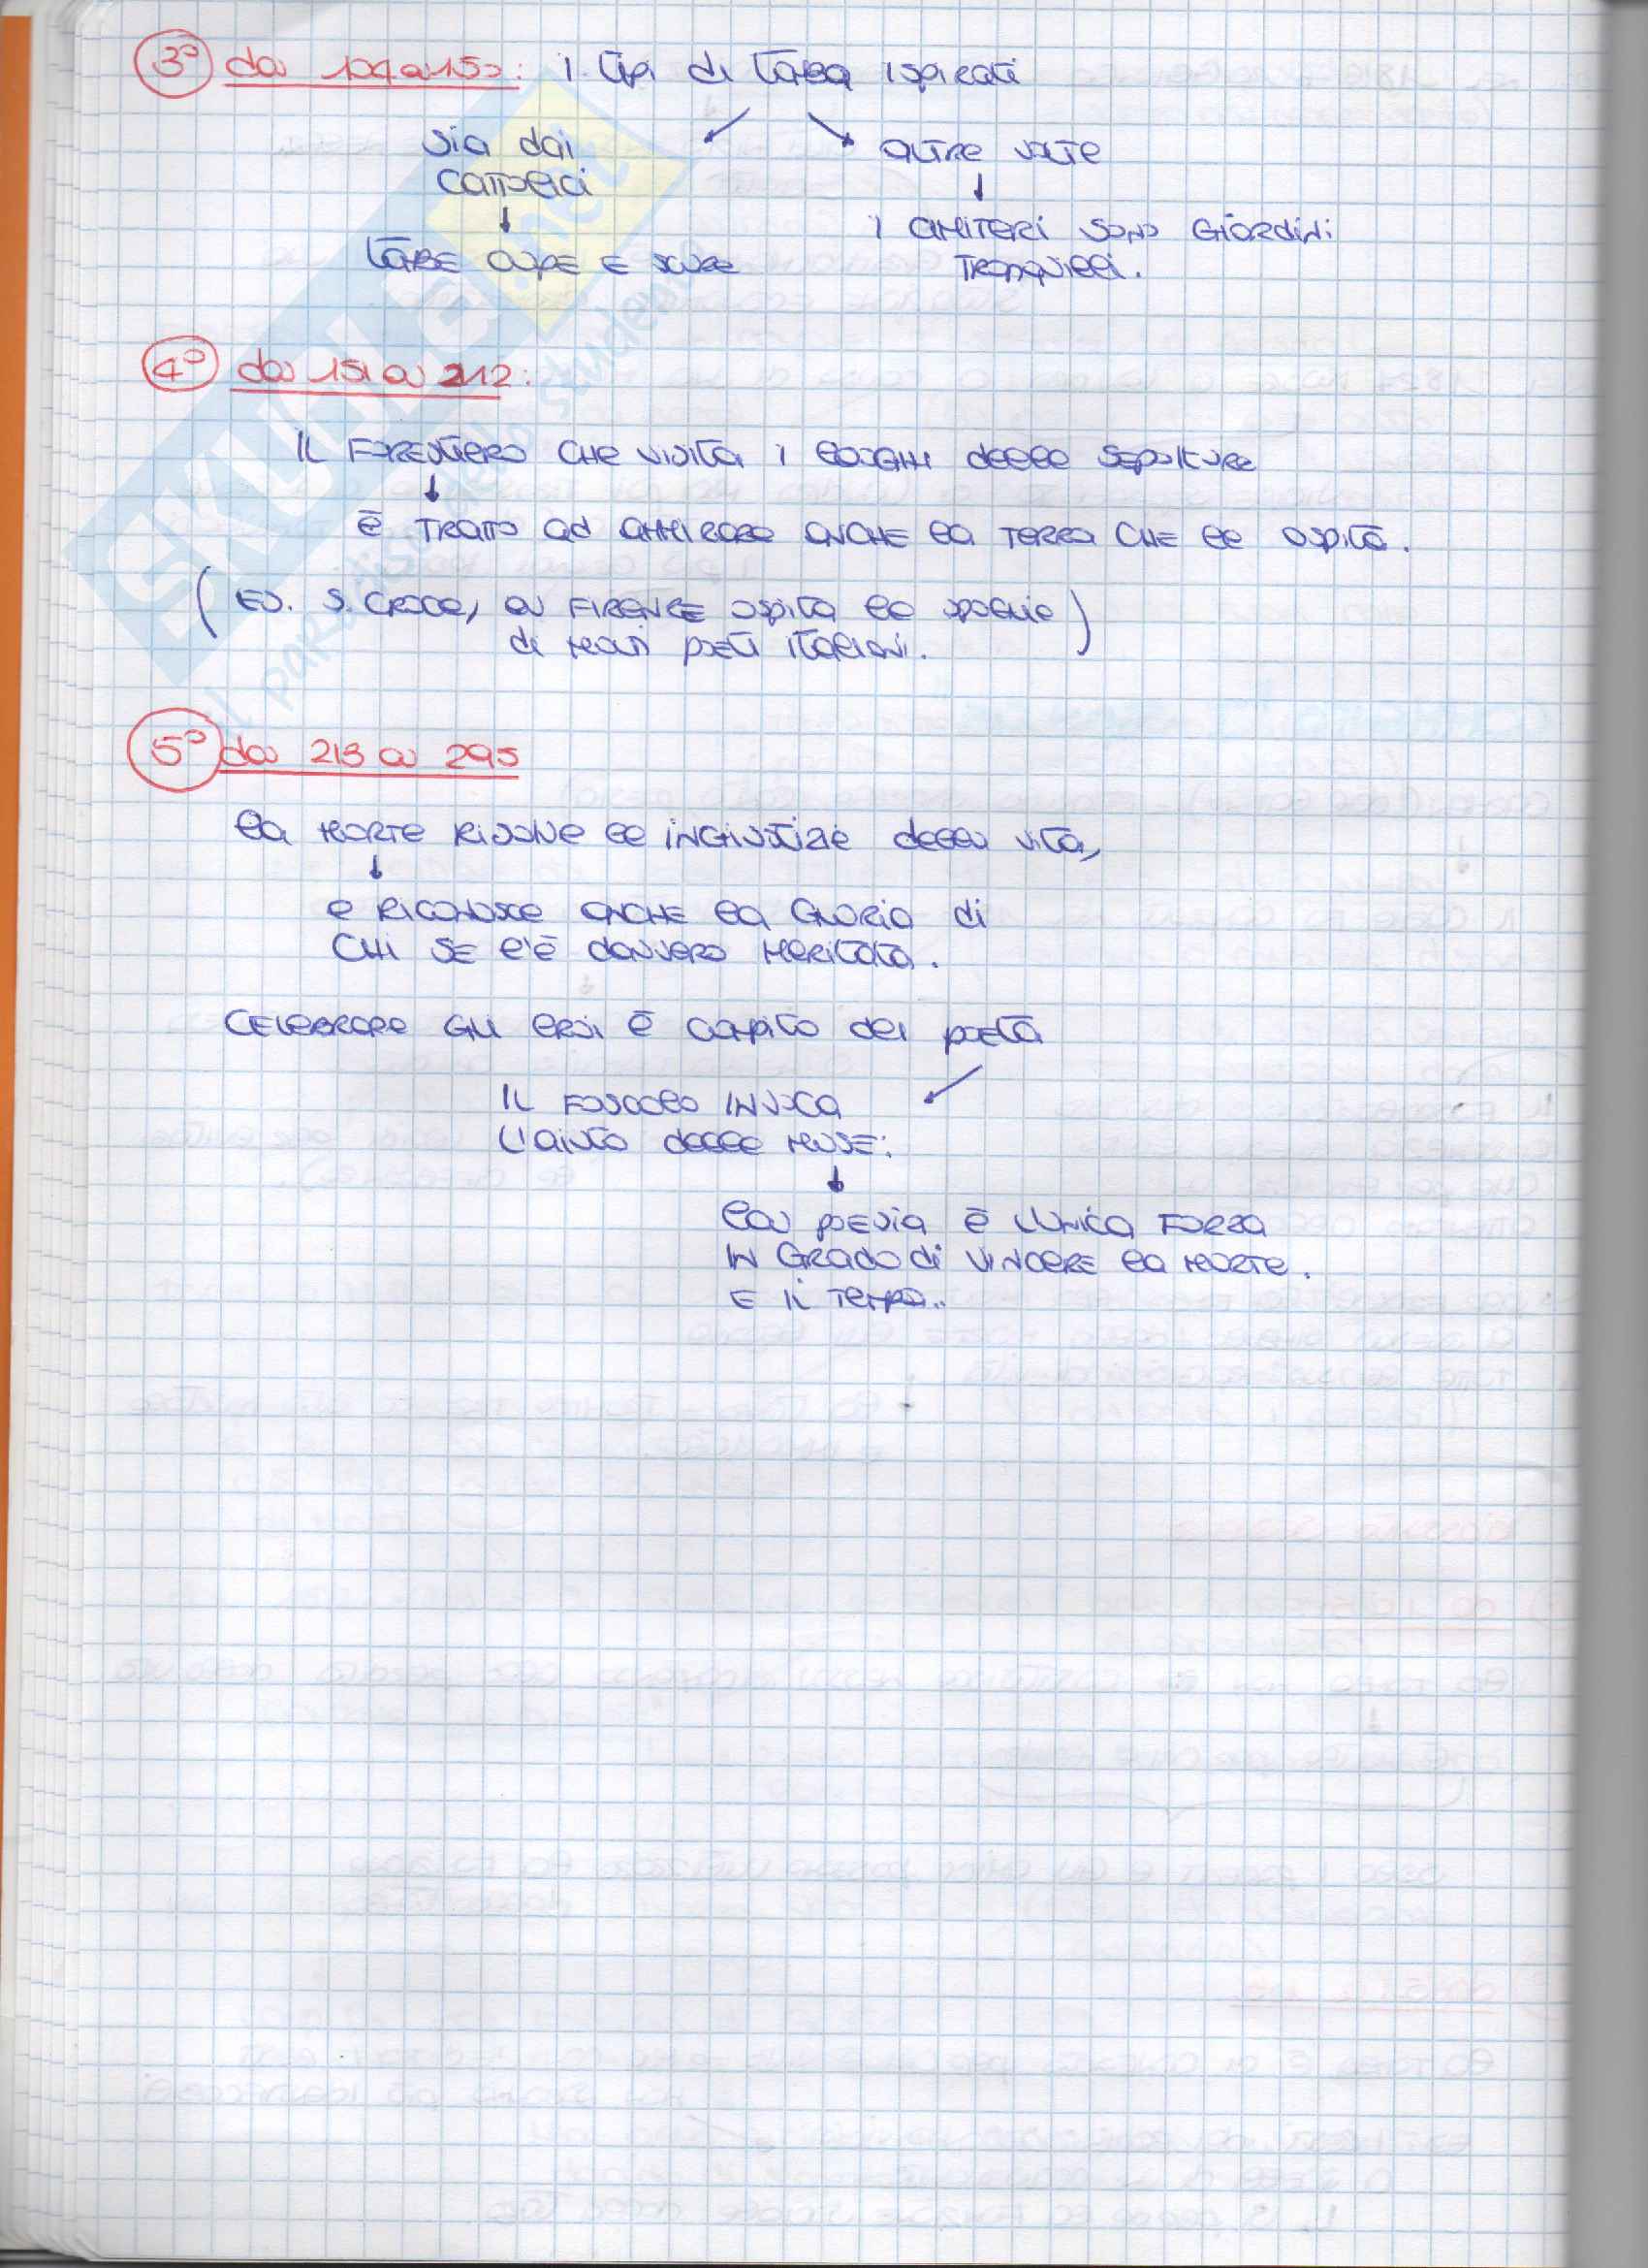 3° da 104 a 150: i tipi di tomba ispirati
sia dai
cattolici
altre volte
tombe cupe e scure
i cimiteri sono giardini
tranquilli.
4° da 151 a 212:
Il forestiero che visita i luoghi delle sepolture
è tratto ad ammirare anche la terra che le ospita.
(Es. S. Croce, a Firenze ospita le spoglie
di molti poeti italiani.)
5° da 213 a 295
la morte risolve le ingiustizie della vita,
e riconosce anche la gloria di
chi se l'è davvero meritata.
Celebrare gli eroi è compito dei poeta
Il Foscolo invoca
l'aiuto delle muse:
la poesia è l'unica forza
in grado di vincere la morte.
e il tempo..
SKUOLA.net
il paradiso dello studente